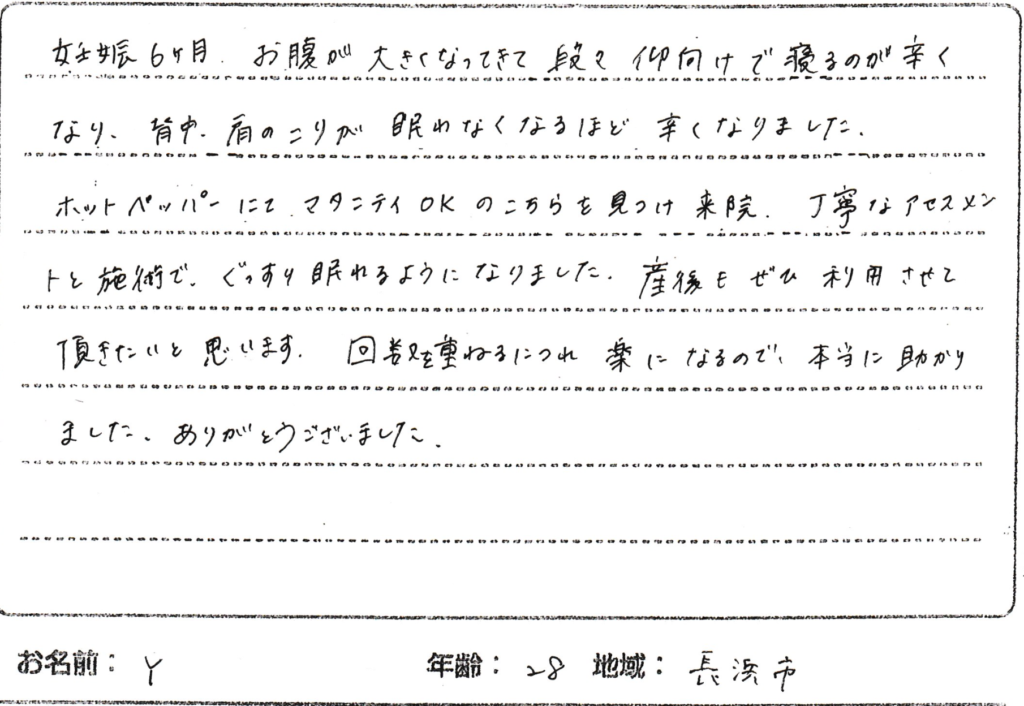 妊娠6ヶ月. お腹が 大きくなってきて 段々 仰向けで寝るのが辛く
なり、背中、肩のこりが 眠れなくなるほど 辛くなりました.
ホットペッパーにて マタニティOKのこちらを見つけ来院. 丁寧なアセスメン
トと施術で、ぐっすり眠れるようになりました. 産後もぜひ利用させて
頂きたいと思います. 回数を重ねるにつれ 楽になるので、本当に助かり
ました、ありがとうございました.
お名前： Y 年齢： 28 地域： 長浜市